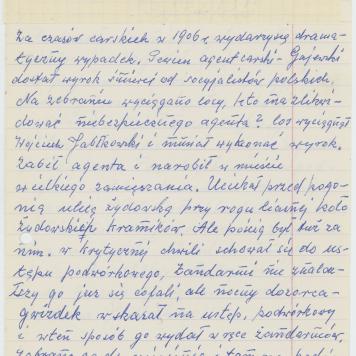 Za czasów carskich w 1906 r. wydarzył się drama-
tyczny wypadek. Pewien agent carski - Gajewski
dostał wyrok śmierci od socyjalistów polskich.
Na zebraniu wyciągano losy, kto ma zlikwi-
dować niebezpiecznego agenta? los wyciągnął
Wojciech Jabłkowski i musiał wykonać wyrok.
Zabił agenta i narobił w mieście
wielkiego zamięszania. Uciekał przed pogo-
nią ulicą Żydowską przy rogu ciasnej koło
Żydowskich Kramików. Ale pościg był tuż za
nim. w krytycznej chwili schował się do us-
tępu podwórkowego, Żandarmi nie znalaz-
łszy go już się cofali, ale nocny dozorca-
gwizdek wskazał na ustęp, podwórkowy
i w ten sposób go wydał w ręce żandarmów.